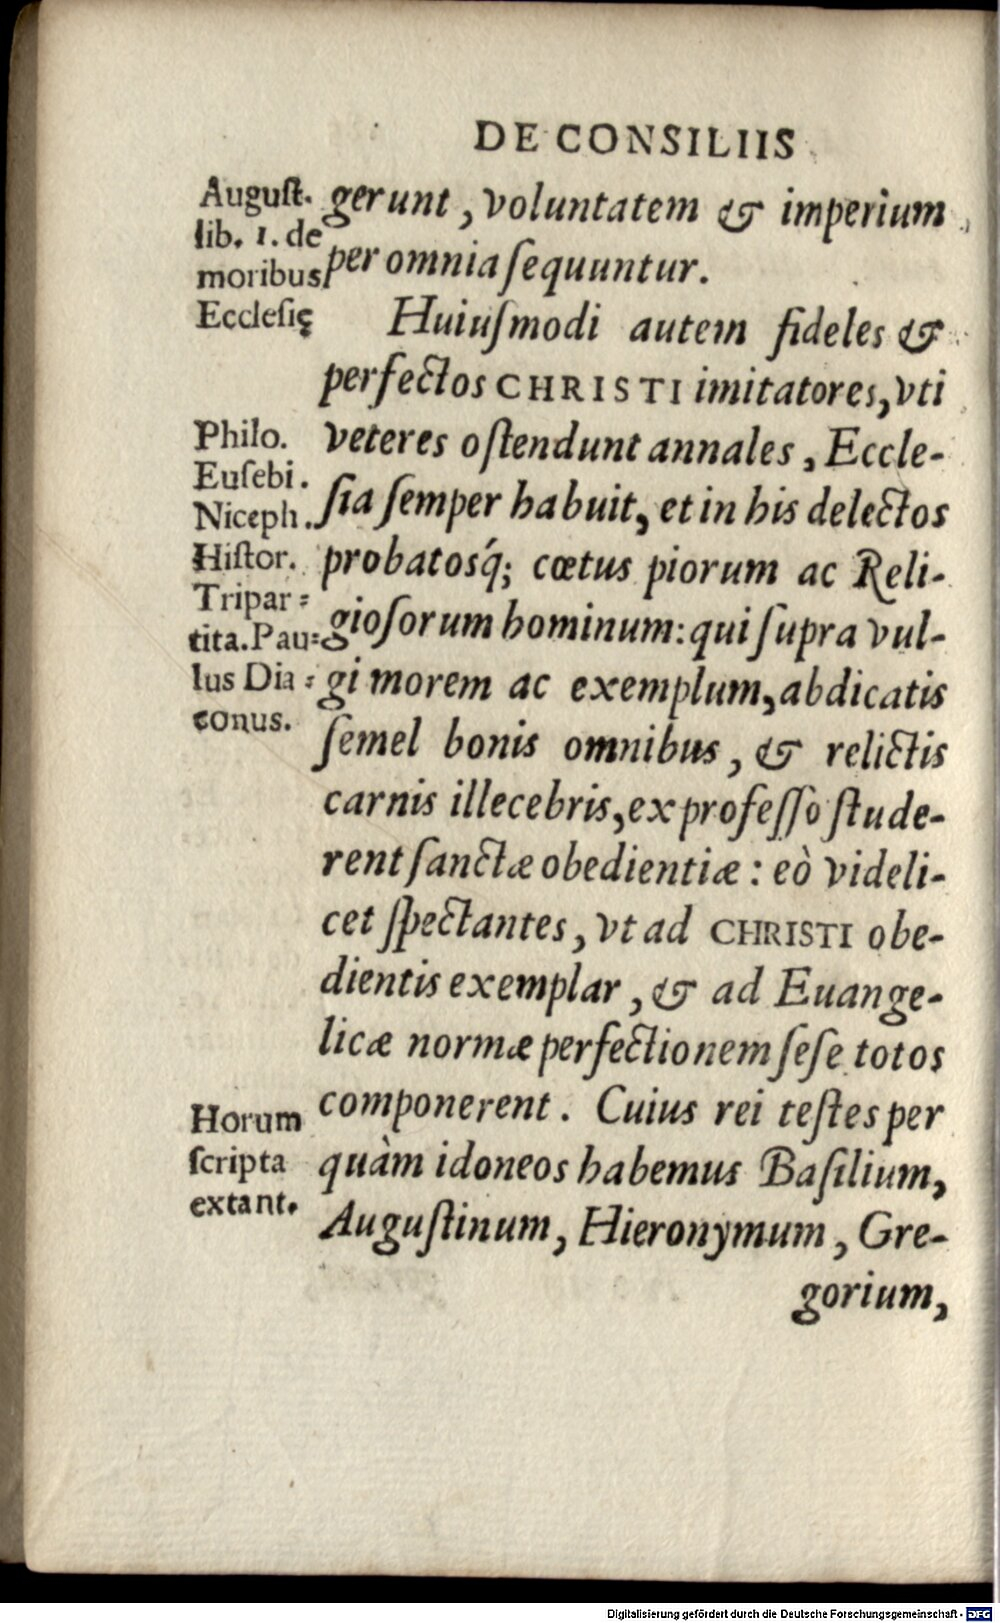 DE CONSILIIS
Auguſt.
lib. 1. de
moribus
Eccleſię
gerunt, voluntatem & imperium
per omnia ſequuntur.
Huiuſmodi autem fideles &
perfectos CHRISTI imitatores, vti
veteres oſtendunt annales, Eccle-
ſia ſemper habuit, et in his delectos
probatosq́; cœtus piorum ac Reli-
gioſorum hominum: qui ſupra vul-
gi morem ac exemplum, abdicatis
ſemel bonis omnibus, & relictis
carnis illecebris, ex profeſſo ſtude-
rent ſanctæ obedientiæ: eò videli-
cet ſpectantes, vt ad CHRISTI obe-
dientis exemplar, & ad Euange-
licæ normæ perfectionem ſeſe totos
componerent. Cuius rei teſtes per
quàm idoneos habemus Baſilium,
Auguſtinum, Hieronymum, Gre-
gorium,
Philo.
Euſebi.
Niceph.
Hiſtor.
Tripar-
tita. Pau-
lus Dia-
conus.
Horum
ſcripta
extant.
Digitalisierung gefördert durch die Deutsche Forschungsgemeinschaft - DFG